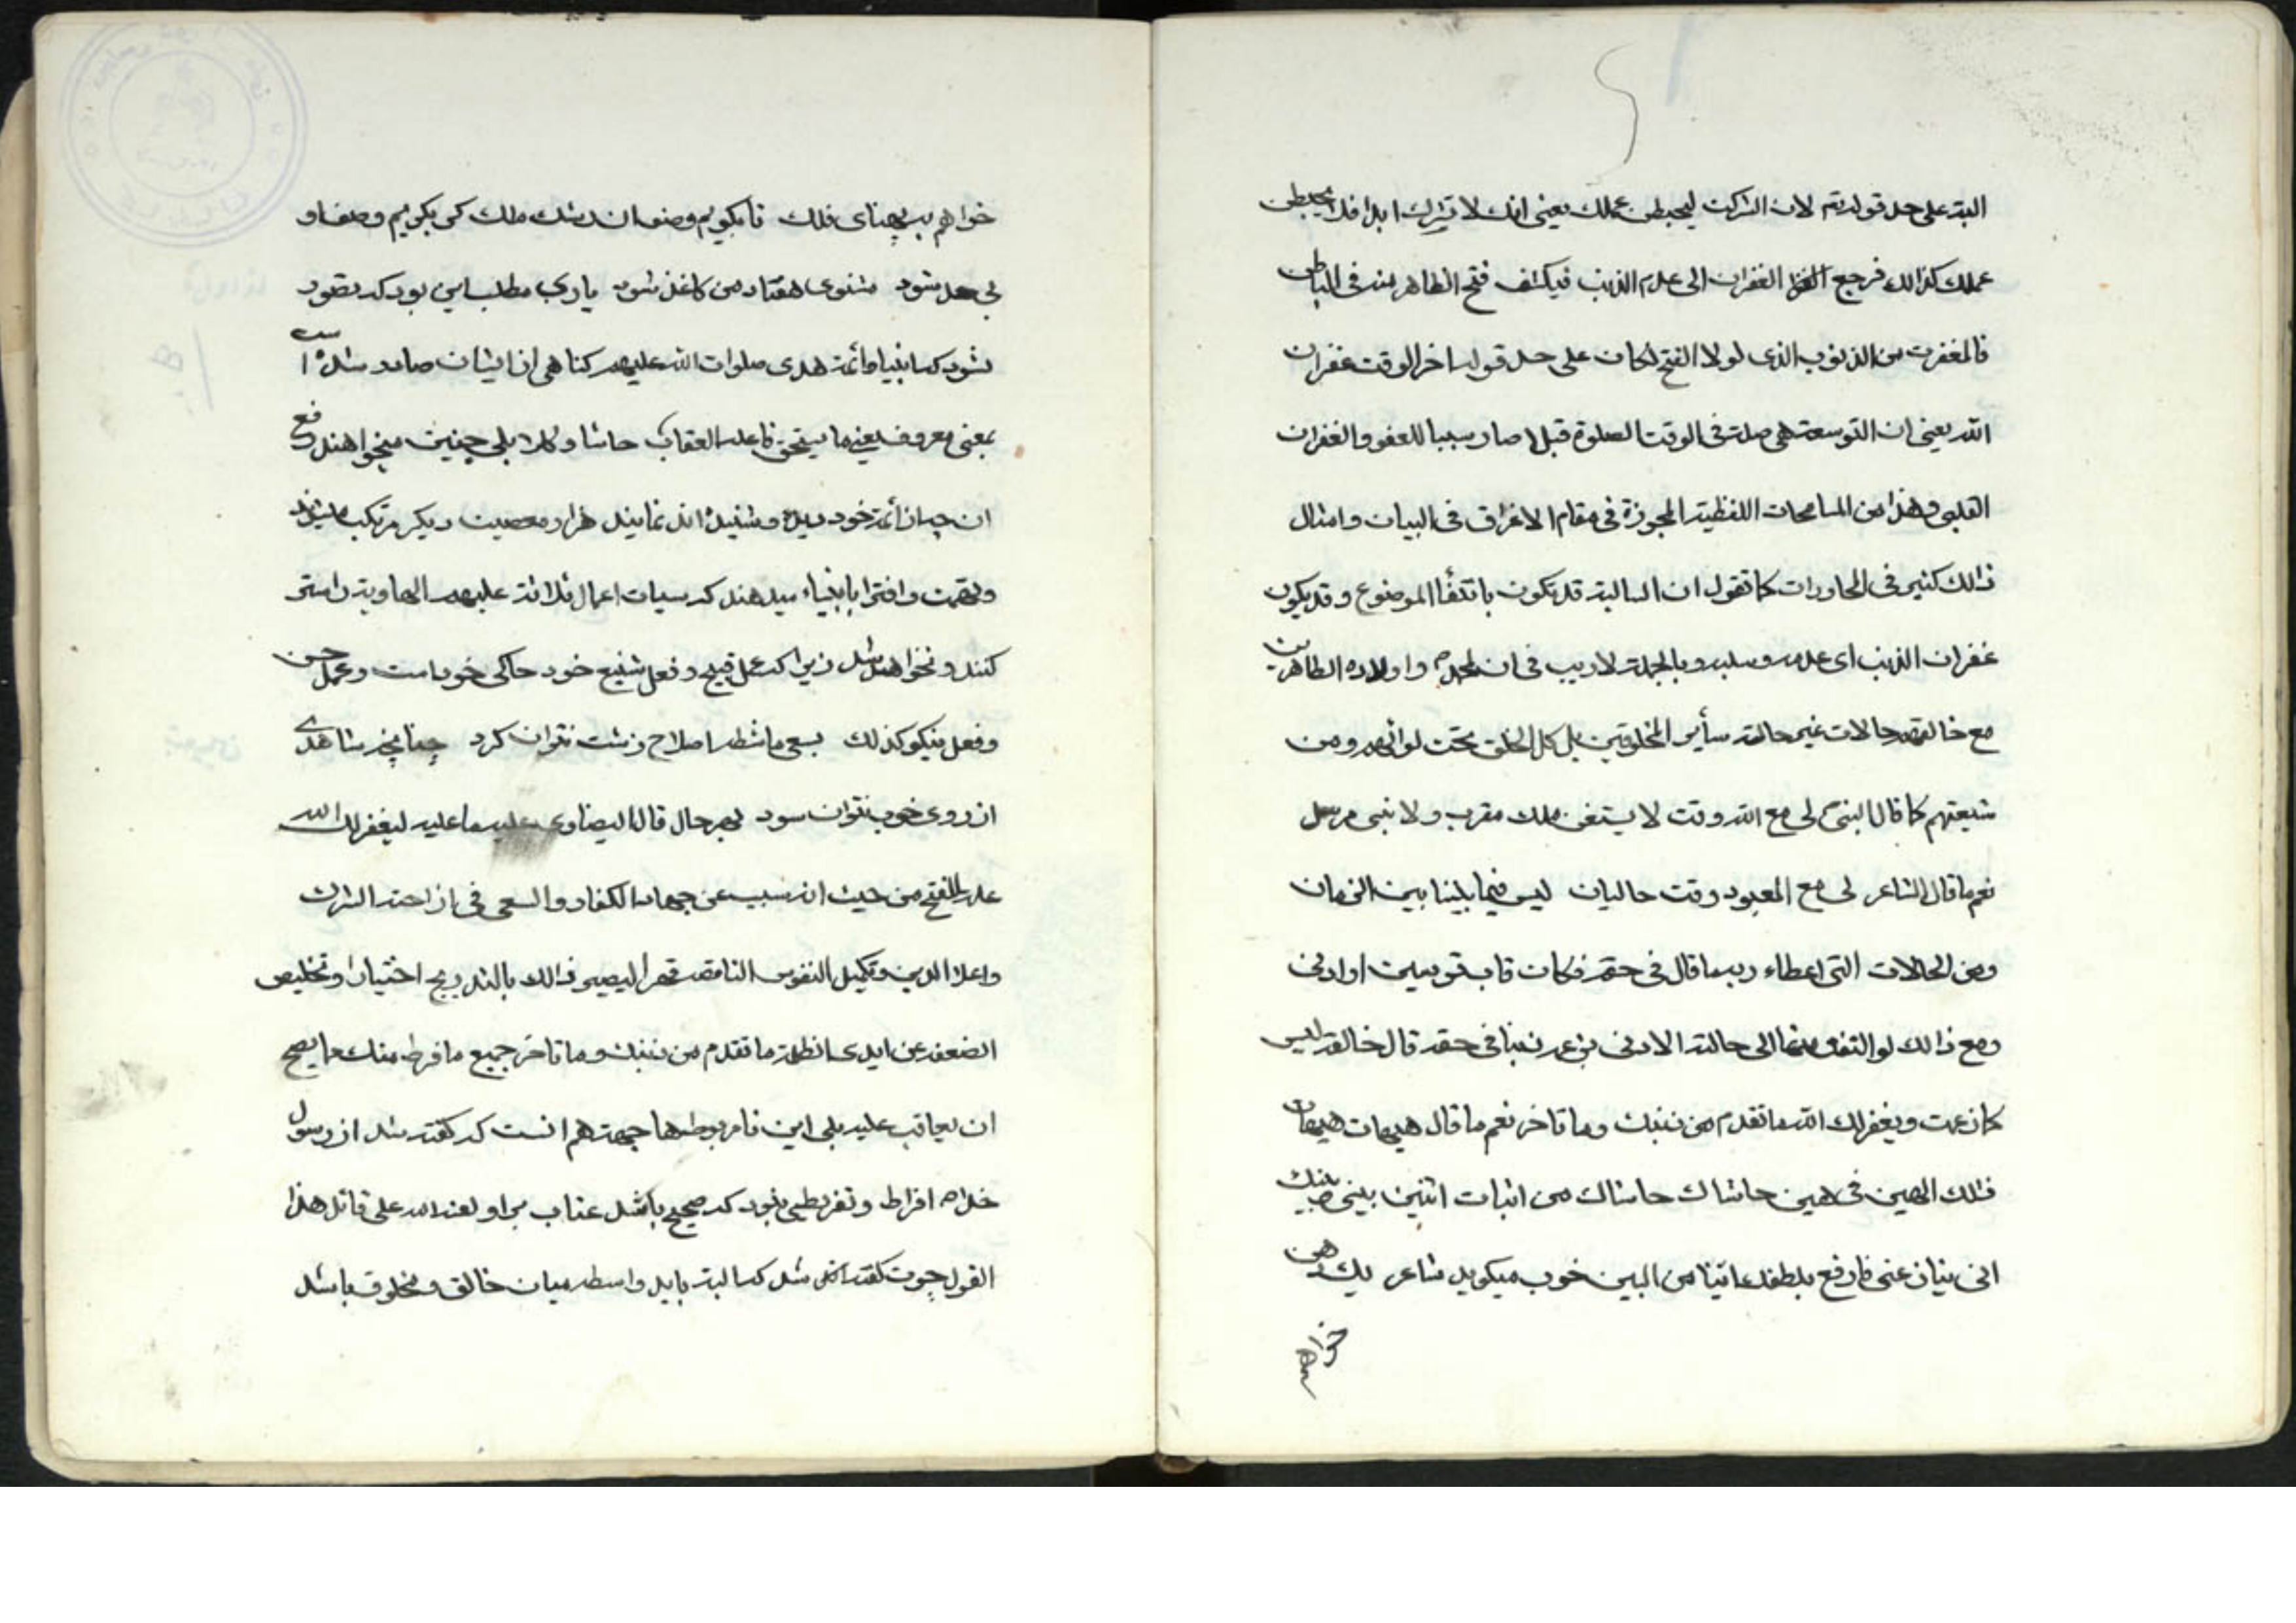 البته على حد قوله تعم لان اشركت ليحبطن عملك يعنى انك لا تشرك ابدا فلا يحبطن
عملك كذالك فرجع الغفران الى عدم الذنب فيكشف فتح الظاهر منه فى الباطن
فالمغفرت من الذنوب الذى لولا الفتح لكان على حد قوله اخر الوقت غفران
الله يعنى ان التوسعة هى صلة فى الوقت الصلوة قبلا صار سببا للعفو والغفران
القلبى وهذا من المسامحات اللفظية المجوزة فى مقام الاغراق فى البيان وامثال
ذالك كثير فى المحاورات كما تقول ان السالبة قد تكون بانتفأ الموضوع وقد يكون
غفران الذنب اى عدمه وسلبه وبالجملة لا ريب فى ان لمحمد ص واولاده الطاهرين
مع خالقهم حالات غير حالة سأير المخلوقين بل كل الخلق تحت لوائهم ومن
شيعتهم كما قال النبى لى مع الله وقت لا يسعنى ملك مقرب ولا نبى مرسل
نعم ما قال الشاعر لى مع المعبود وقت حاليان ليس فيما بيننا بين الزمان
ومن الحالات التى اعطاء ربه ما قال فى حقه فكان قاب قوسين او ادنى
ومع ذالك لو التفت منها الى حالته الادنى بزعمه ذنبا فى حقه قال خالقه ليس
كما زعمت ويغفر لك الله ما تقدم من ذنبك وما تاخر نعم ما قال هيهات هيهات
فذلك العين فى عين حاشاك حاشاك من اثبات اثنين بينى وبينك
انى ينازعنى فارفع بلطفك انيا من البين خوب ميكويد شاعر يك دهن
خواهم
خواهم به پهناى فلك تا بكويم وصف ان رشك ملك كر بكويم وصف او
بى حد شود مثنوى هفتاد من كاغذ شود بارى مطلب اين بود كه تصور
نشود كه انبيا و ائمة هدى صلوات الله عليهم كناهى از ايشان صادر شده است
بمعنى معروف يعنى ما يستحق فاعله العقاب حاشا وكلا بلى چنين ميخواهند رفع
ان چه از ائمة خود ديده و شنيده اند نمايند هزار معصيت ديكر مرتكب ميشوند
وتهمت وافترا بانبياء ميدهند كه سيات اعمال ثلاثة عليهم الهاوية را ستر
كنند و نخواهد شد زيرا كه عمل قبيح و فعل شنيع خود حاكى خود است و عمل حسن
وفعل نيكو كذلك بسعى ماشطه اصلاح زشت نتوان كرد چنانچه شاهدى
از روى خوب نتوان سود بهر حال قال البيضاوى عليه ما عليه ليغفر لك الله
علة للفتح من حيث انه سبب عن جهاد الكفار والسعى فى ازاحة الشرك
واعلا الدين وتكميل النفوس الناقصه قهرا ليصير ذالك بالتدريج اختيارا وتخليص
الضعفه عن ايدى الظلمة ما تقدم من ذنبك وما تاخر جميع ما فرط منك مما يصح
ان يعاقب عليه بلى اين نامربوطها جهة هم انست كه كفته شد از رسول
خدا ص افراط و تفريطى نبود كه صحيح باشد عتاب بر او لعنة الله على قائل هذا
القول چون كفته شد كه البته بايد واسطه ميان خالق و مخلوق باشد